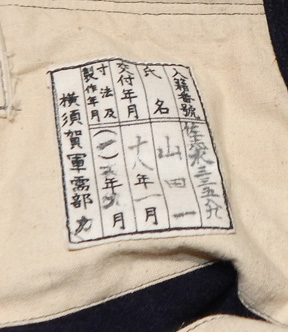 入籍番號 佐志水三三五九
氏名 山田一
交付年月 十八年一月
寸法及製作年月 (一) 年 月
横須賀軍需部